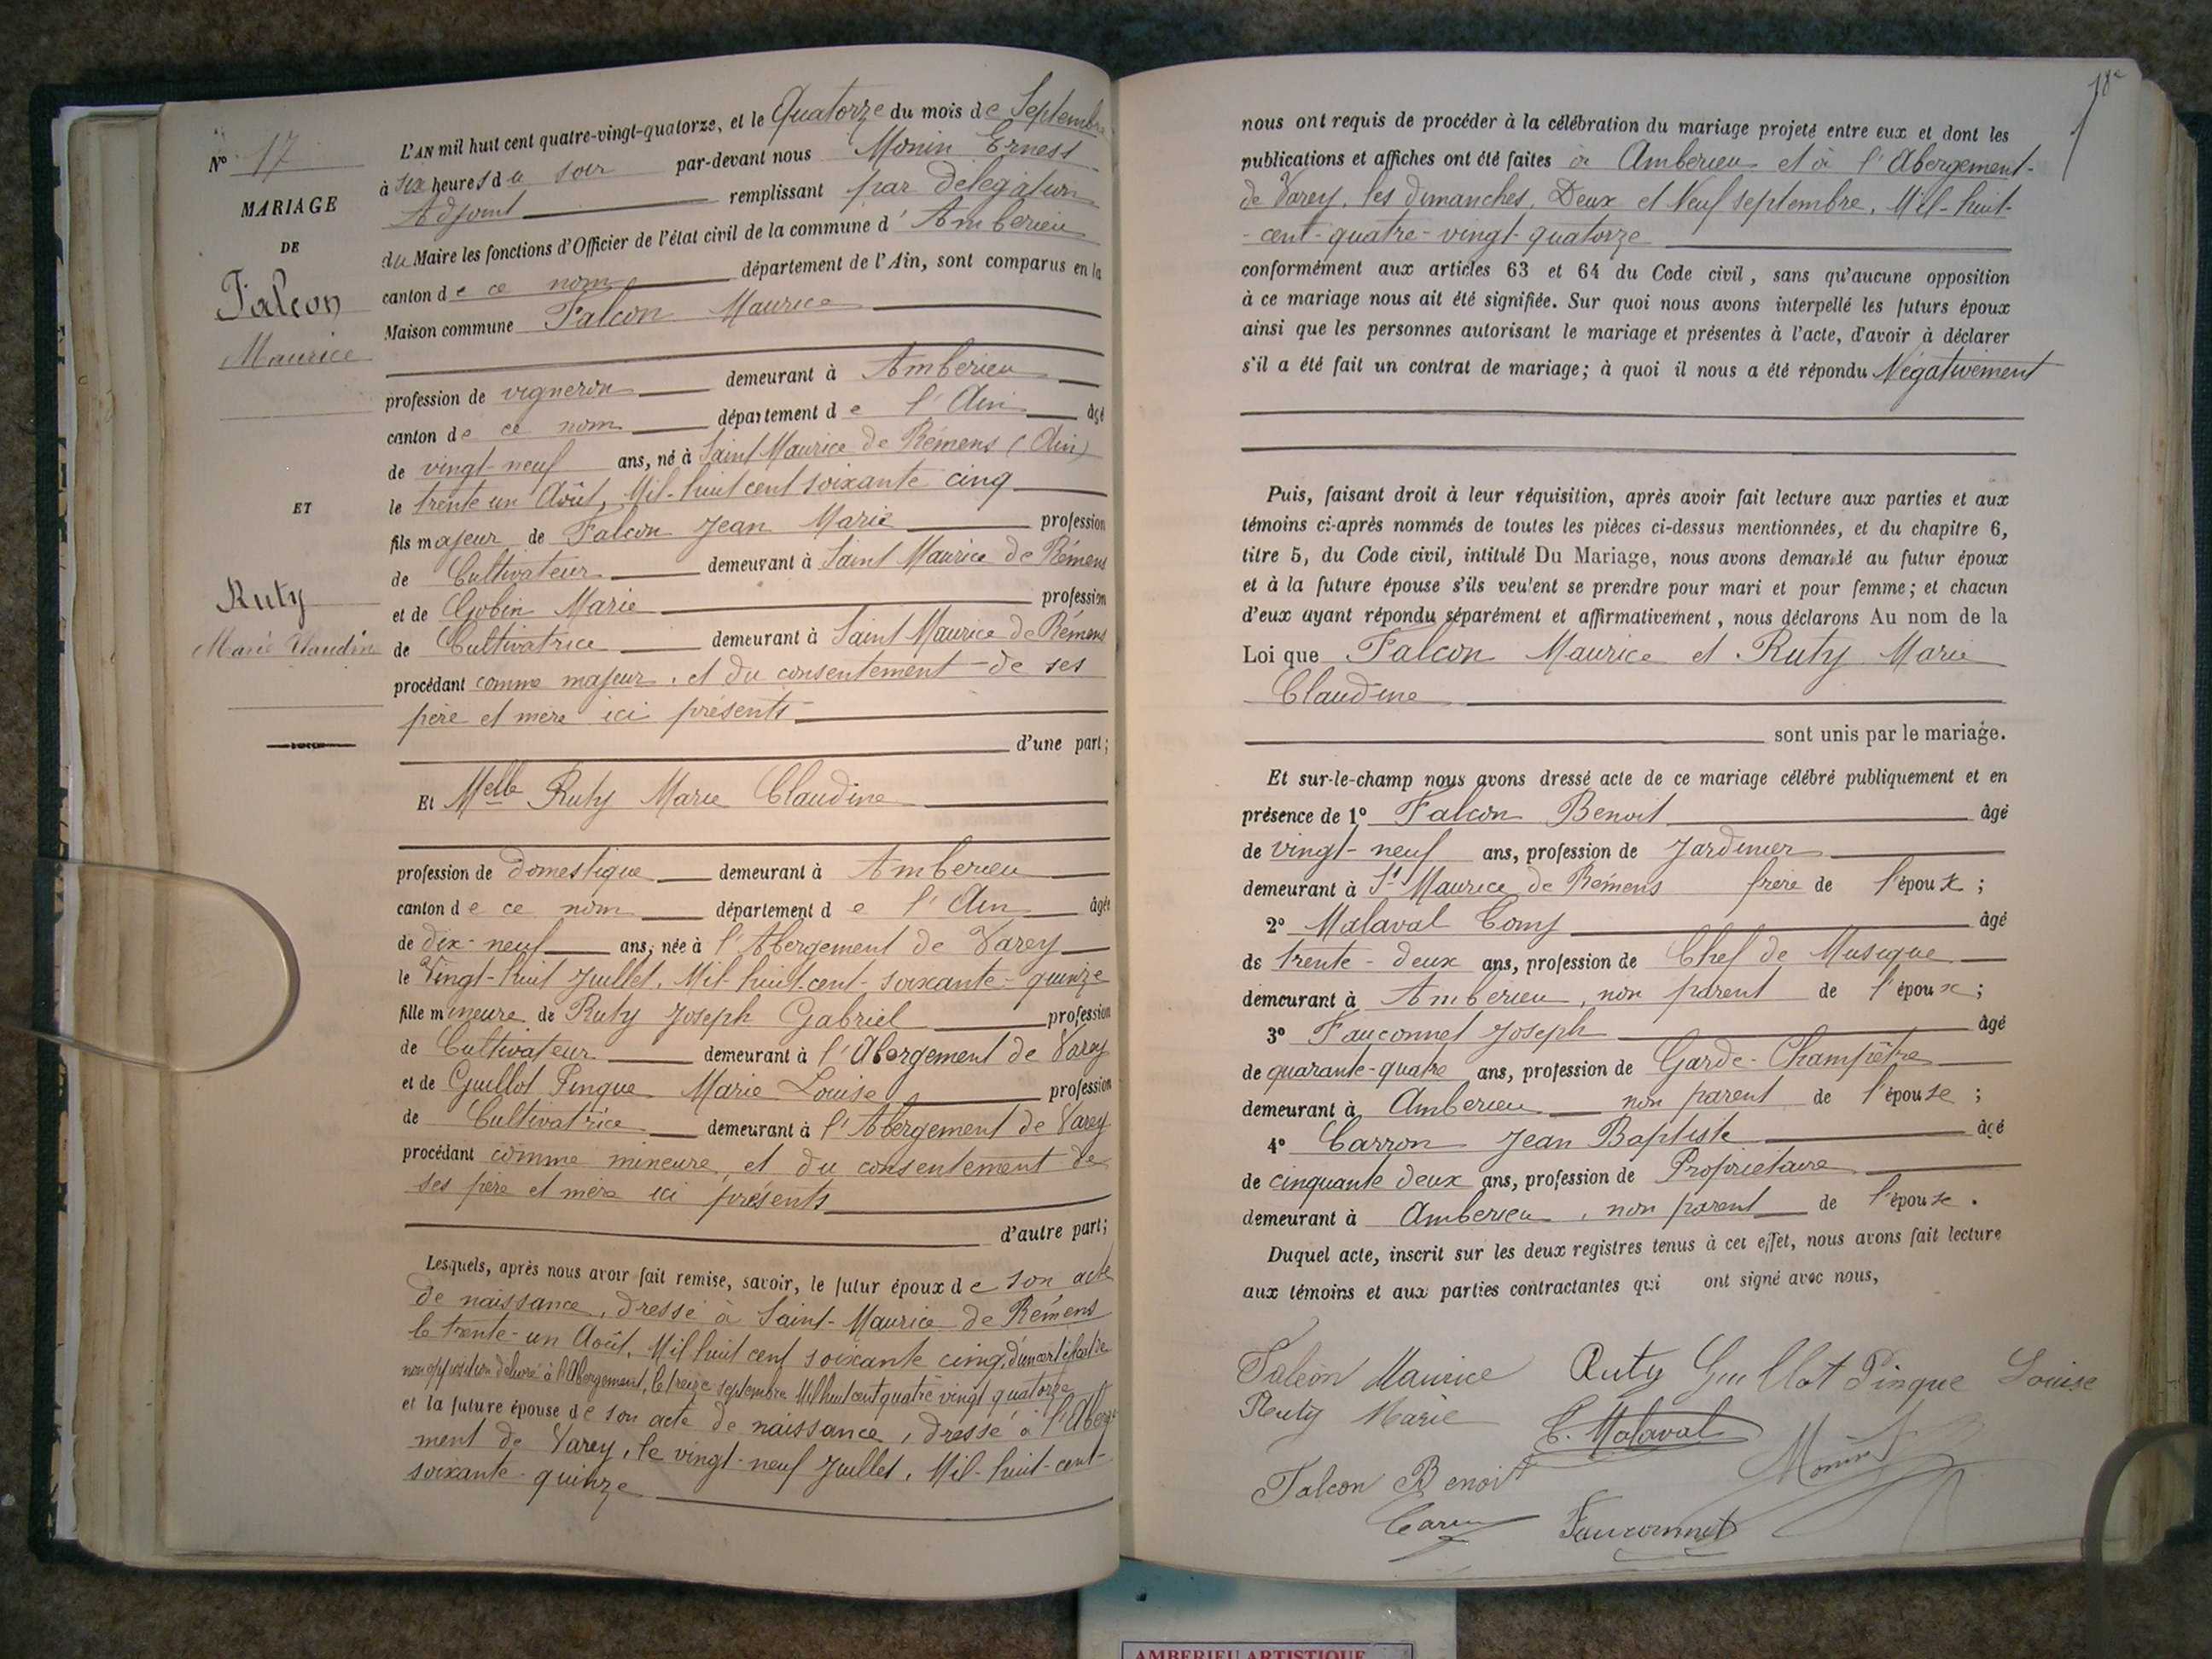 N° 17
MARIAGE
DE
Falcon
Maurice
ET
Ruty
Marie Claudine
L'AN mil huit cent quatre-vingt-quatorze, et le Quatorze du mois de Septembre
à six heures du soir par-devant nous Monin Ernest
Adjoint remplissant par délégation
du Maire les fonctions d'Officier de l'état civil de la commune d'Ambérieu
canton de ce nom département de l'Ain, sont comparus en la
Maison commune Falcon Maurice
profession de vigneron demeurant à Ambérieu
canton de ce nom département de l'Ain âgé
de vingt-neuf ans, né à Saint Maurice de Rémens (Ain)
le trente un Août, Mil-huit cent soixante cinq
fils majeur de Falcon Jean Marie profession
de Cultivateur demeurant à Saint Maurice de Rémens
et de Gobin Marie profession
de Cultivatrice demeurant à Saint Maurice de Rémens
procédant comme majeur, et du consentement de ses
père et mère ici présents
d'une part;
Et Melle Ruty Marie Claudine
profession de domestique demeurant à Ambérieu
canton de ce nom département de l'Ain âgée
de dix-neuf ans, née à l'Abergement de Varey
le Vingt-huit Juillet, Mil-huit-cent-soixante-quinze
fille mineure de Ruty Joseph Gabriel profession
de Cultivateur demeurant à l'Abergement de Varey
et de Guillot Pingue Marie Louise profession
de Cultivatrice demeurant à l'Abergement de Varey
procédant comme mineure, et du consentement de
ses père et mère ici présents
d'autre part;
Lesquels, après nous avoir fait remise, savoir, le futur époux de son acte
de naissance, dressé à Saint-Maurice de Rémens
le trente-un Août, Mil huit cent soixante cinq, d'un certificat de
non opposition délivré à l'Abergement, le treize septembre Mil huit cent quatre vingt quatorze
et la future épouse de son acte de naissance, dressé à l'Aberge-
ment de Varey, le vingt-neuf Juillet, Mil-huit-cent-
soixante-quinze
18e
nous ont requis de procéder à la célébration du mariage projeté entre eux et dont les
publications et affiches ont été faites à Ambérieu et à l'Abergement-
de Varey, les dimanches, Deux et Neuf septembre, Mil-huit-
-cent-quatre-vingt-quatorze
conformément aux articles 63 et 64 du Code civil, sans qu'aucune opposition
à ce mariage nous ait été signifiée. Sur quoi nous avons interpellé les futurs époux
ainsi que les personnes autorisant le mariage et présentes à l'acte, d'avoir à déclarer
s'il a été fait un contrat de mariage; à quoi il nous a été répondu Négativement
Puis, faisant droit à leur réquisition, après avoir fait lecture aux parties et aux
témoins ci-après nommés de toutes les pièces ci-dessus mentionnées, et du chapitre 6,
titre 5, du Code civil, intitulé Du Mariage, nous avons demandé au futur époux
et à la future épouse s'ils veulent se prendre pour mari et pour femme; et chacun
d'eux ayant répondu séparément et affirmativement, nous déclarons Au nom de la
Loi que Falcon Maurice et Ruty Marie
Claudine
sont unis par le mariage.
Et sur-le-champ nous avons dressé acte de ce mariage célébré publiquement et en
présence de 1° Falcon Benoit âgé
de vingt-neuf ans, profession de Jardinier
demeurant à St Maurice de Rémens frère de l'époux ;
2° Malaval Tomy âgé
de trente-deux ans, profession de Chef de Musique
demeurant à Ambérieu, non parent de l'époux ;
3° Fauconnet Joseph âgé
de quarante-quatre ans, profession de Garde-Champêtre
demeurant à Ambérieu non parent de l'épouse ;
4° Carron Jean Baptiste âgé
de cinquante deux ans, profession de Propriétaire
demeurant à Ambérieu, non parent de l'épouse.
Duquel acte, inscrit sur les deux registres tenus à cet effet, nous avons fait lecture
aux témoins et aux parties contractantes qui ont signé avec nous,
Falcon Maurice Ruty Guillot Pingue Louise
Ruty Marie Malaval
Monin
Falcon Benoit
Fauconnet
AMBERIEU ARTISTIQUE